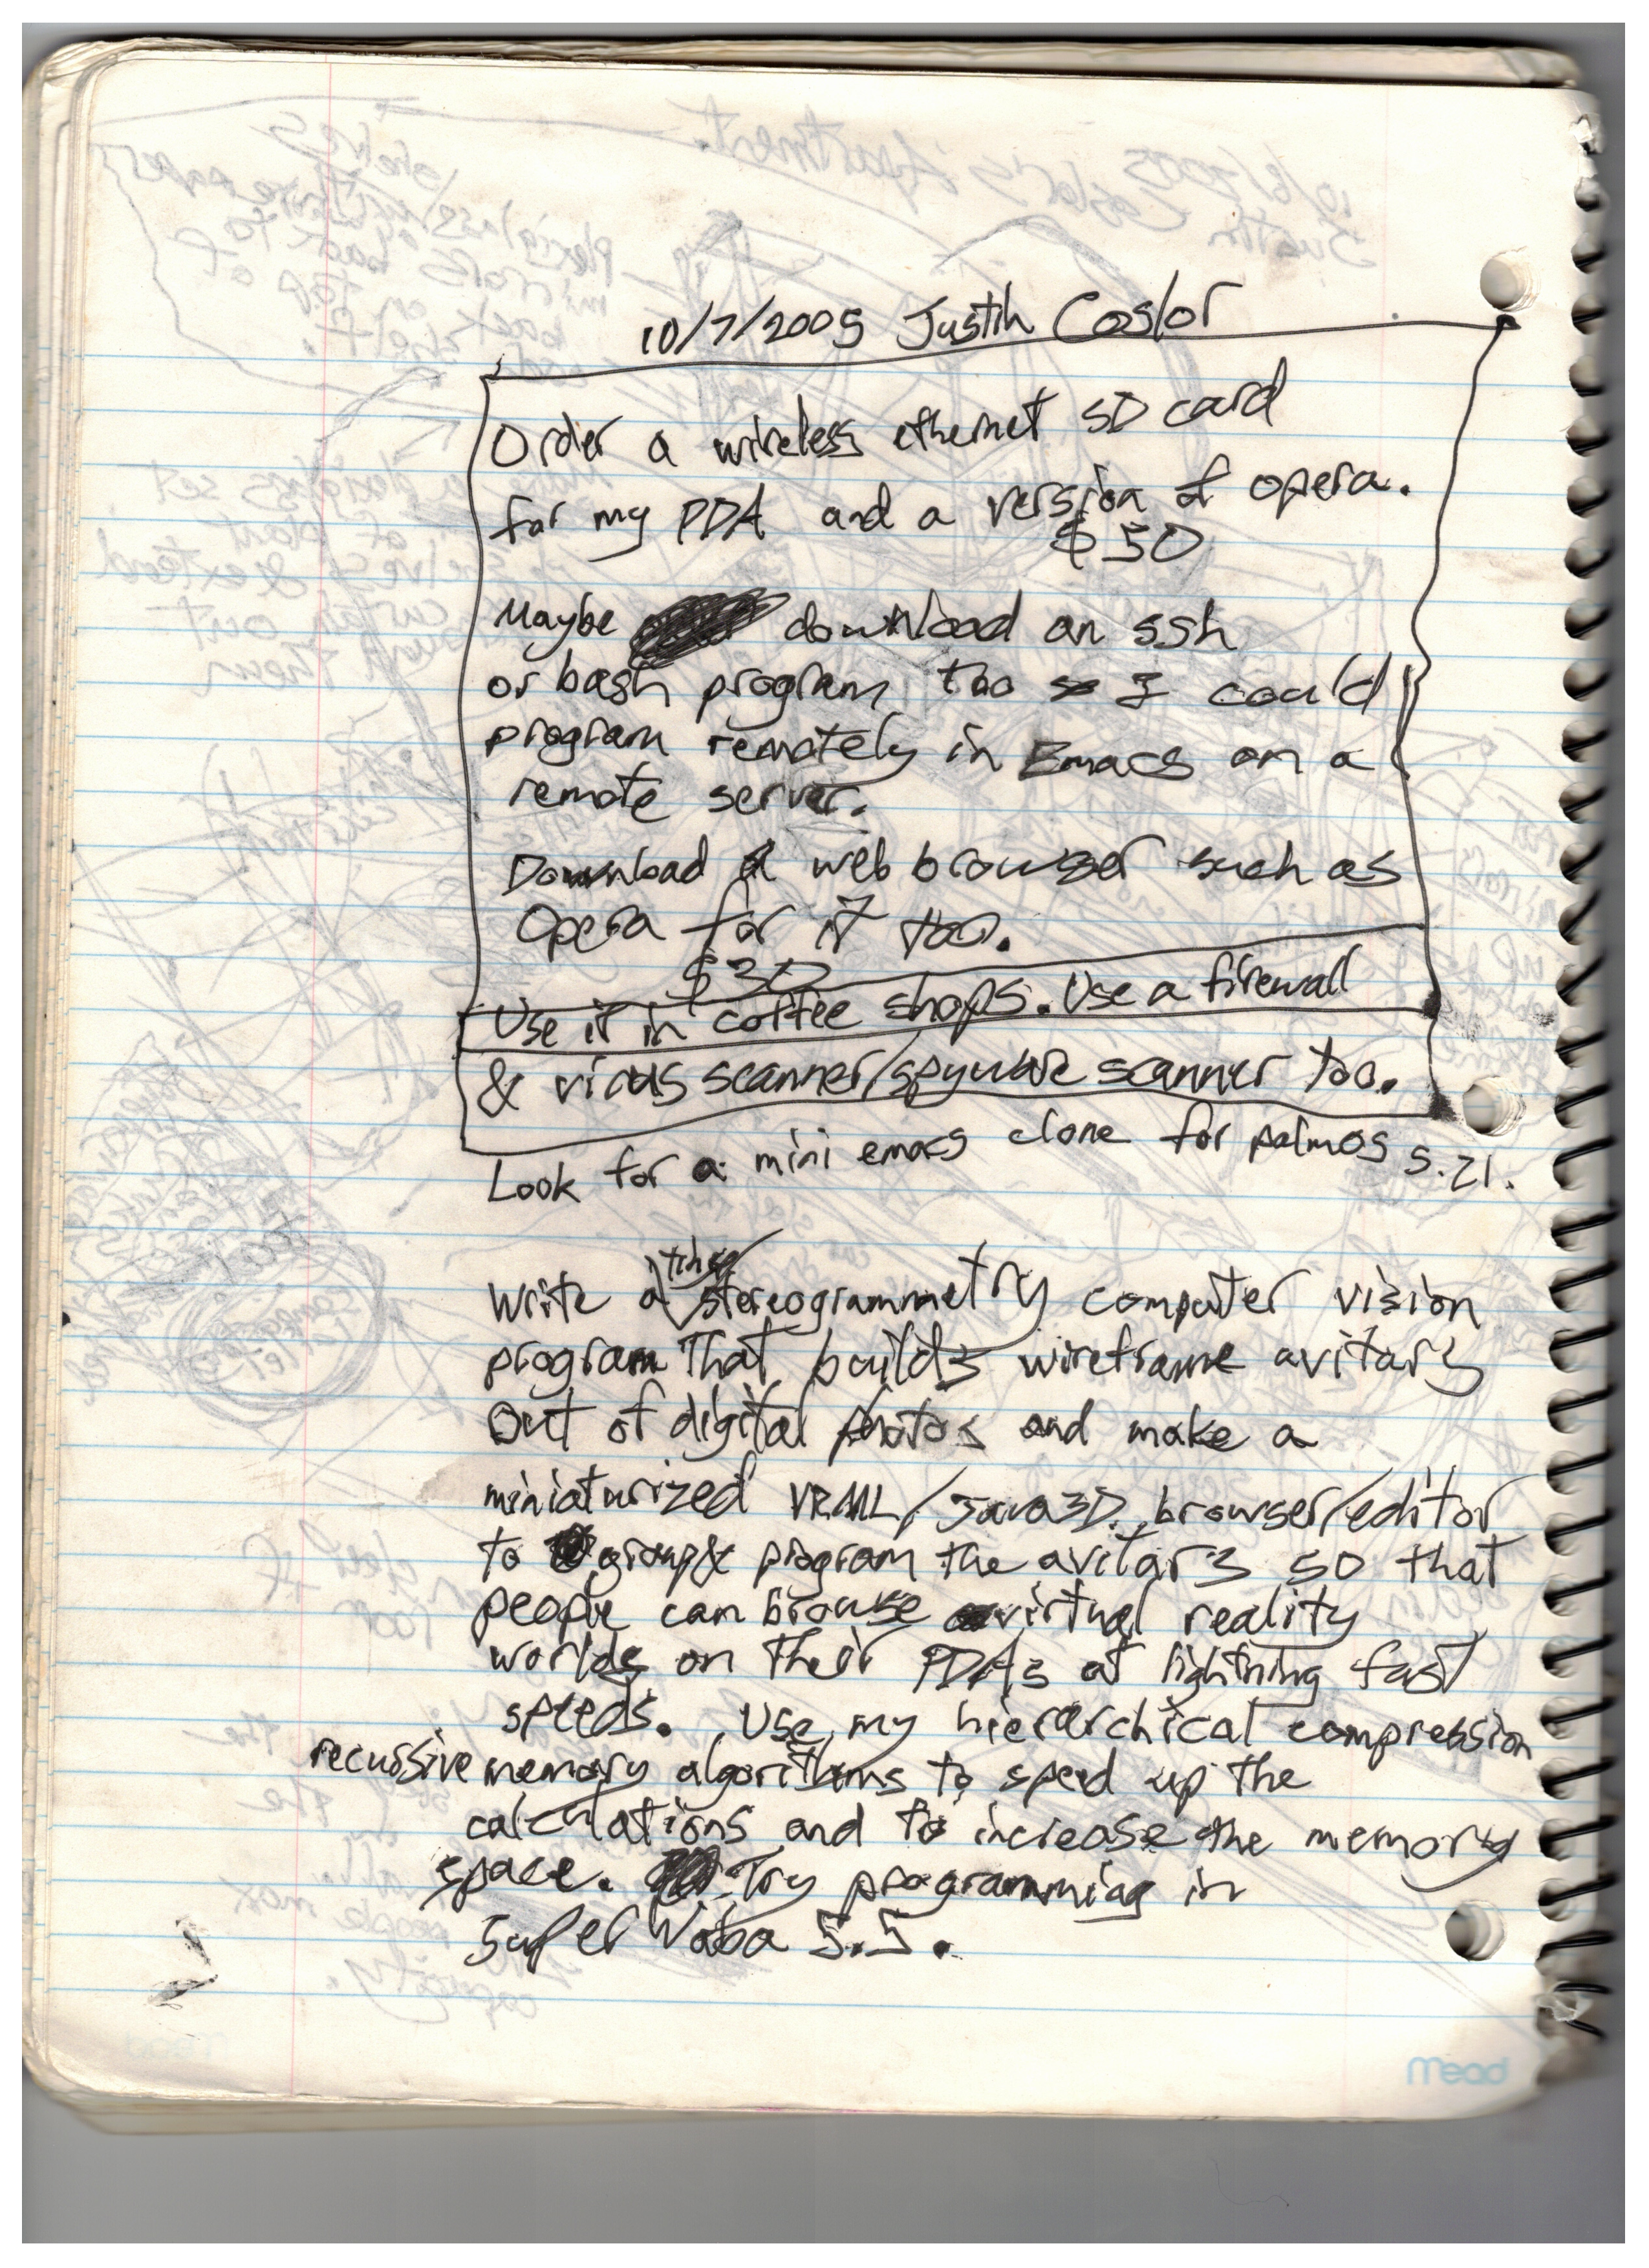 10/7/2005 Justin Coslor
Order a wireless ethernet SD card
for my PDA and a version of opera.
$50
Maybe download an ssh
or bash program too so I could
program remotely in Emacs on a
remote server.
Download a web browser such as
Opera for it too.
$30
Use it in coffee shops. Use a firewall
& virus scanner/spyware scanner too.
Look for a mini emacs clone for palmos 5.21.
Write a stereogrammetry computer vision
program that builds wireframe avitars
Out of digital photos and make a
miniaturized VRML/Java3D browser/editor
to group & program the avitars so that
people can browse virtual reality
worlds on their PDAs at lightning fast
speeds. Use my hierarchical compression
recursive memory algorithms to speed up the
calculations and to increase the memory
space. Try programming in
Super Waba 5.5.
Mead